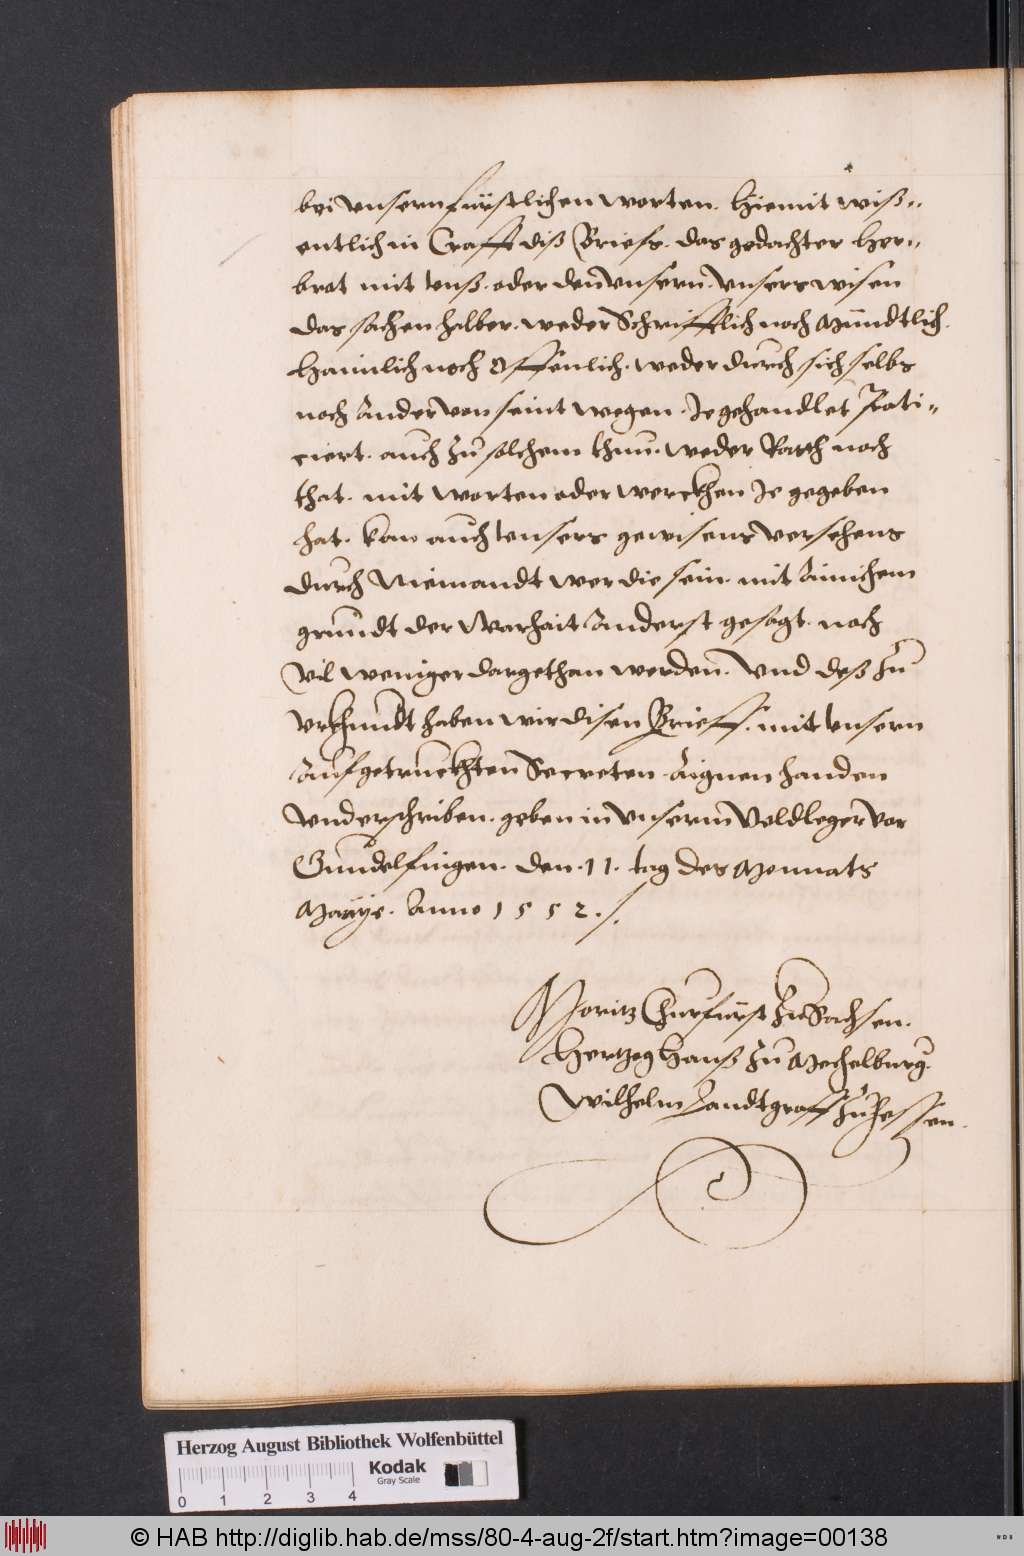 bei vnsern fürstlichen worten. hiemit wiß„
entlich in Crafft diß Briefs. das gedachter Her„
brot mit vnß. oder den vnsern. vnsers wisen
das sachen halber. weder Schrifftlich noch Mündtlich.
haimlich noch Offenlich. weder durch sich selbs
noch Ander von seint wegen. Je gehandlet Prati„
ciert. auch zu solchem thun. weder Rath noch
that. mit worten oder werckhen Je gegeben
hat. kan auch vnsers gewisens versehens
durch Niemandt wer die sein. mit Ainichem
grundt der Warhait Anderst gesagt. noch
vil weniger dargethan werden. Vnd deß zu
vrkhundt haben wir disen Brieff. mit vnsern
Aufgetruckhten Secreten. Aignen handen
vnderschriben. geben in vnserm Veldleger vor
Gundelfingen. den. 11. tag des Monnats
Maÿe. Anno 1552./.
Moritz Churfürst zu Sachsen.
Hertzog Hanß zu Mechelburg.
Wilhelm Landtgraff zu Hessen.
Herzog August Bibliothek Wolfenbüttel
Kodak
Gray Scale
0 1 2 3 4
© HAB http://diglib.hab.de/mss/80-4-aug-2f/start.htm?image=00138